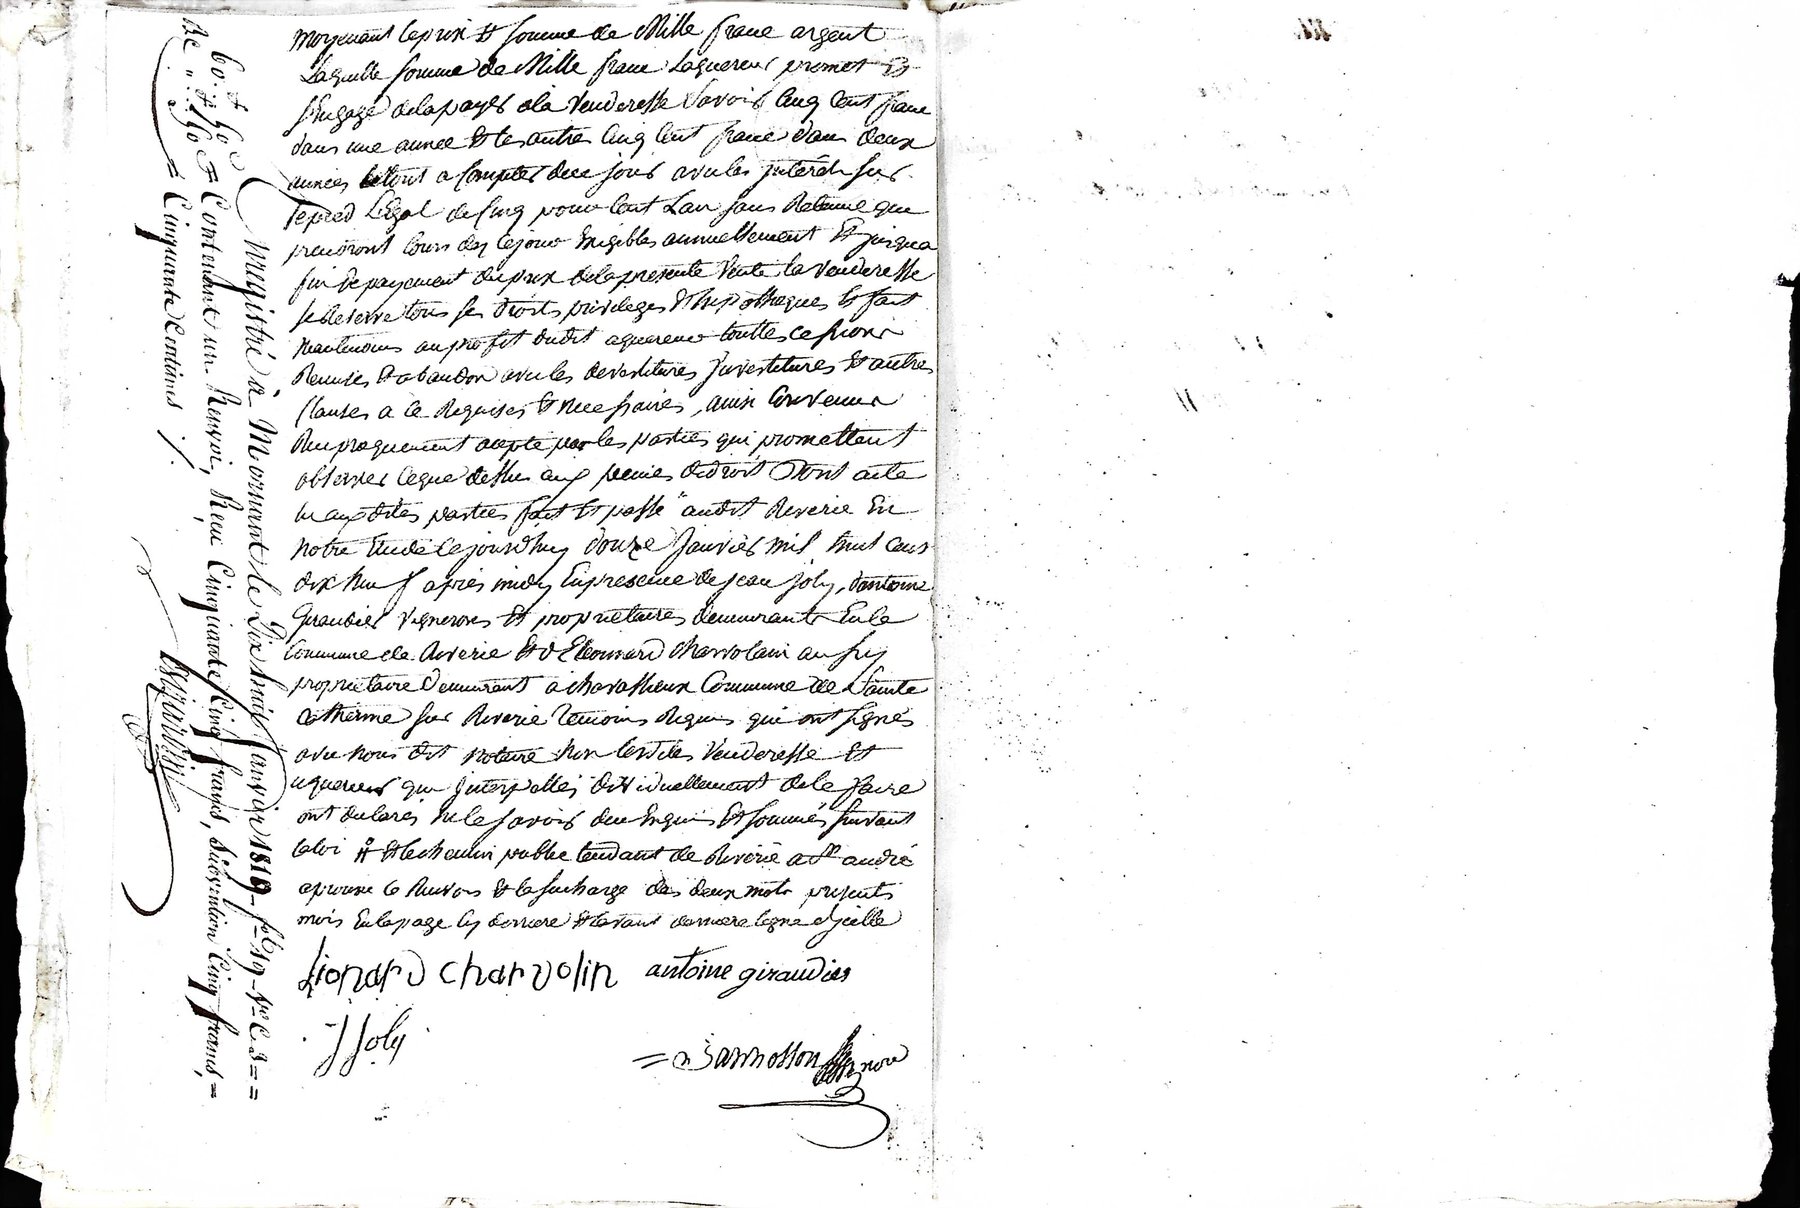 moyenant le prix & somme de Mille franc argent
Laquelle somme de Mille franc Laquereur promet &
sengage de la payer a la Venderesse Savoir Cinq Cent franc
dans une année & les autres Cinq Cent franc dans deux
années le tout a Compter de ce jour avec les jnterêts sur
le pied Légal de Cinq pour Cent Lan sans Retenue qui
prendront Cours des ce jour Exigibles annuellement & jusqua
fin de payement du prix de la presente Vente la Venderesse
se Reserve tous ses droits privileges & hipotheques & fait
neantmoins au profit dudit aquereur touttes cessions
Remises & abandon avec les devestitures jnvestitures & autres
Clauses a ce Requises & necessaires, ainsi Convenu &
Reciproquement accepté par les parties qui promettent
observer ce que dessus aux peines de droit Dont acte
lu aux dites parties fait & passé audit Riverie En
notre Etude cejourdhuy douze Janvier mil huit Cent
dix neuf après midy En presence de jean joly, dantoine
Giraudier Vignerons & proprietaires demeurants En la
Commune de Riverie & d Leonnard Charvolain aussy
proprietaire demeurant a chavassieux Commune de Sainte
Catherine sur Riverie Temoins Requis qui ont signés
avec nous dit notaire non lesdites Venderesse &
aquereur qui jnterpellés dividuellement de le faire
ont declarés ne le savoir de ce Enquis & sommés suivant
la loi # & le chemin public tendant de Riverie a St andré
aprouvé le Renvois & la surcharge des deux mots
mois En la page Cy derriere & lavant derniere ligne dycelle
Lionard Charvolin antoine giraudier
J Joly
= Bannosson nore
Enregistré à Mornant le Dix huit Janvier 1819 - fo 19 - Vo C. 3 = =
60. # 50 c Contenant un Renvoi, Reçu Cinquante Cinq francs, Subvention Cinq francs, =
De " 5. 50 = Cinquante Centimes ./.